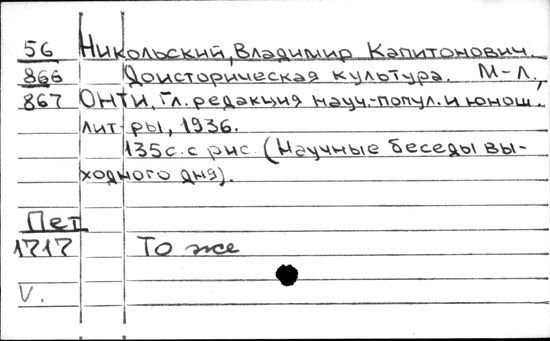 56 Никольский, Владимир Капитонович.
866 Доисторическая культура. М-Л.,
867 ОНТИ, Гл. редакция науч.-попул. и юнош.
лит-ры, 1936.
135с. с рис. (Научные беседы вы-
ходного дня).
Пет
1717 То же
V.